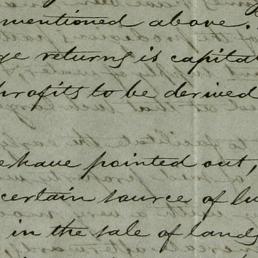 mentioned above.
ge returns is capital
profits to be derived
have pointed out,
certain source of
in the sale of lands